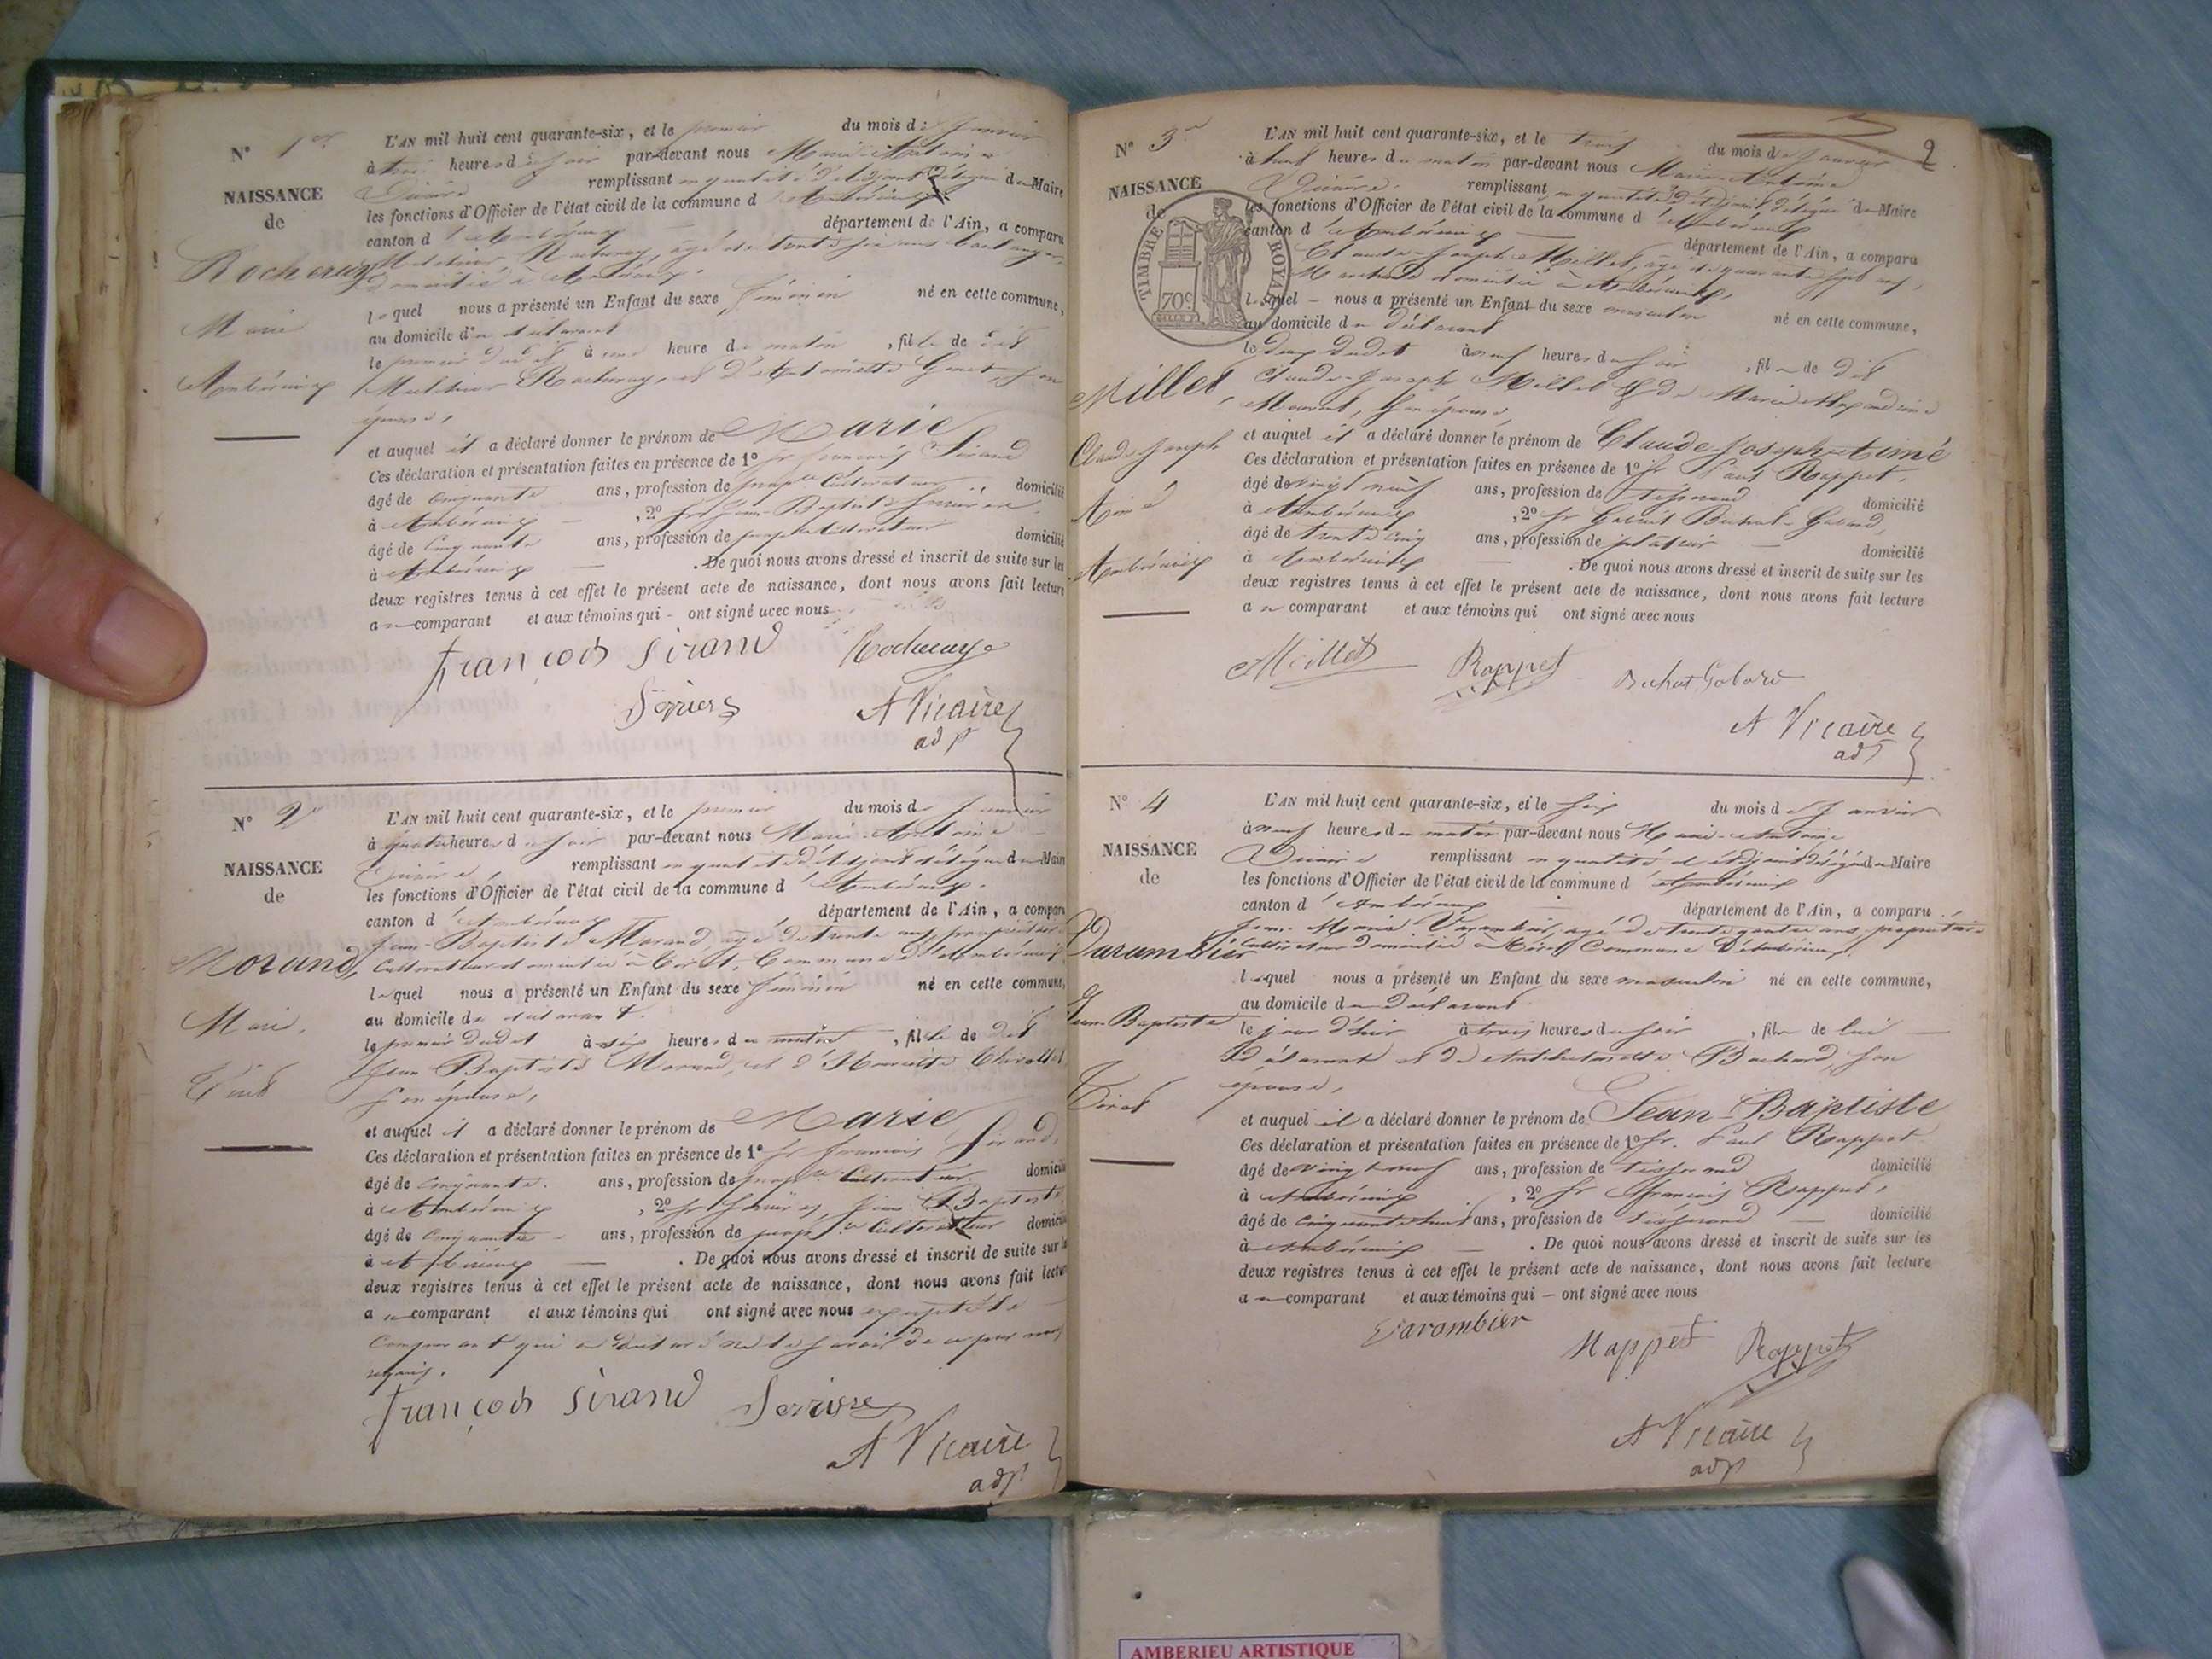 N° 1er
NAISSANCE
de
Rocheray
Marie
Ambérieux
L'AN mil huit cent quarante-six, et le premier du mois de Janvier
à trois heures du soir par-devant nous Marie-Antoine
Vicaire remplissant en qualité d'adjoint délégué du Maire
les fonctions d'Officier de l'état civil de la commune d'Ambérieux
canton d'Ambérieux département de l'Ain, a comparu
Rocheray, âgé de trente six ans
domicilié à Ambérieux,
lequel nous a présenté un Enfant du sexe féminin né en cette commune,
au domicile du déclarant
le premier dudit à une heure du matin, fille de dit
Rocheray, et d'Antoinette son
épouse,
et auquel il a déclaré donner le prénom de Marie
Ces déclaration et présentation faites en présence de 1° Sr François Sirand
âgé de cinquante ans, profession de propre Cultivateur domicilié
à Ambérieux, 2° Sr Jean-Baptiste
âgé de cinquante ans, profession de propre Cultivateur domicilié
à Ambérieux. De quoi nous avons dressé et inscrit de suite sur les
deux registres tenus à cet effet le présent acte de naissance, dont nous avons fait lecture
au comparant et aux témoins qui ont signé avec nous
François Sirand Rocheray
A Vicaire
adjt
N° 2
NAISSANCE
de
Morand,
Marie,
Tiret
L'AN mil huit cent quarante-six, et le premier du mois de Janvier
à quatre heures du soir par-devant nous Marie-Antoine
Vicaire remplissant en qualité d'adjoint délégué du Maire
les fonctions d'Officier de l'état civil de la commune d'Ambérieux.
canton d'Ambérieux département de l'Ain, a comparu
Jean-Baptiste Morand, âgé de trente ans, propriétaire
Cultivateur domicilié à Tiret, Commune d'Ambérieux,
lequel nous a présenté un Enfant du sexe féminin né en cette commune,
au domicile du déclarant.
le premier dudit à six heures du matin, fille de dit
Jean Baptiste Morand, et d'Henriette
son épouse,
et auquel il a déclaré donner le prénom de Marie
Ces déclaration et présentation faites en présence de 1° Sr François Sirand,
âgé de cinquante. ans, profession de propre Cultivateur. domicilié
à Ambérieux, 2° Sr Jean Baptiste
âgé de cinquante ans, profession de propre Cultivateur domicilié
à Ambérieux. De quoi nous avons dressé et inscrit de suite sur les
deux registres tenus à cet effet le présent acte de naissance, dont nous avons fait lecture
au comparant et aux témoins qui ont signé avec nous excepté le
comparant qui a déclaré ne le savoir de ce par nous
requis.
François Sirand
A Vicaire
adjt
2
N° 3
NAISSANCE
de
TIMBRE ROYAL
70c
Millet,
Claude Joseph
Aimé
Ambérieux
L'AN mil huit cent quarante-six, et le trois du mois de Janvier
à huit heures du matin par-devant nous Marie-Antoine
Vicaire. remplissant en qualité d'adjoint délégué du Maire
les fonctions d'Officier de l'état civil de la commune d'Ambérieux
canton d'Ambérieux département de l'Ain, a comparu
Claude-Joseph Millet, âgé de quarante sept ans,
Marchand domicilié à Ambérieux,
lequel nous a présenté un Enfant du sexe masculin né en cette commune,
au domicile du déclarant
le deux dudit à neuf heures du soir, fils de dit
Claude-Joseph Millet & de Marie
son épouse,
et auquel il a déclaré donner le prénom de Claude-Joseph-Aimé
Ces déclaration et présentation faites en présence de 1° Sr Paul Rappet,
âgé de vingt neuf ans, profession de tisserand domicilié
à Ambérieux, 2° Sr Gabriel Buchat-Gobard,
âgé de trente cinq ans, profession de plâtrier domicilié
à Ambérieux. De quoi nous avons dressé et inscrit de suite sur les
deux registres tenus à cet effet le présent acte de naissance, dont nous avons fait lecture
au comparant et aux témoins qui ont signé avec nous
Millet Rappet Buchat Gobard
A Vicaire
adjt
N° 4
NAISSANCE
de
Varambier
Jean-Baptiste
Tiret
L'AN mil huit cent quarante-six, et le six du mois de Janvier
à neuf heures du matin par-devant nous Marie-Antoine
Vicaire remplissant en qualité d'adjoint délégué du Maire
les fonctions d'Officier de l'état civil de la commune d'Ambérieux
canton d'Ambérieux département de l'Ain, a comparu
Jean-Marie Varambier, âgé de trente quatre ans, propriétaire
Cultivateur domicilié à Tiret Commune d'Ambérieux,
lequel nous a présenté un Enfant du sexe masculin né en cette commune,
au domicile du déclarant
le jour d'hier à trois heures du soir, fils de lui
déclarant et de Bachard, son
épouse,
et auquel il a déclaré donner le prénom de Jean-Baptiste
Ces déclaration et présentation faites en présence de 1° Sr. Paul Rappet
âgé de vingt neuf ans, profession de tisserand domicilié
à Ambérieux, 2° Sr François Rappet,
âgé de cinquante huit ans, profession de tisserand domicilié
à Ambérieux. De quoi nous avons dressé et inscrit de suite sur les
deux registres tenus à cet effet le présent acte de naissance, dont nous avons fait lecture
au comparant et aux témoins qui ont signé avec nous
Varambier Rappet Rappet
A Vicaire
adjt
AMBERIEU ARTISTIQUE